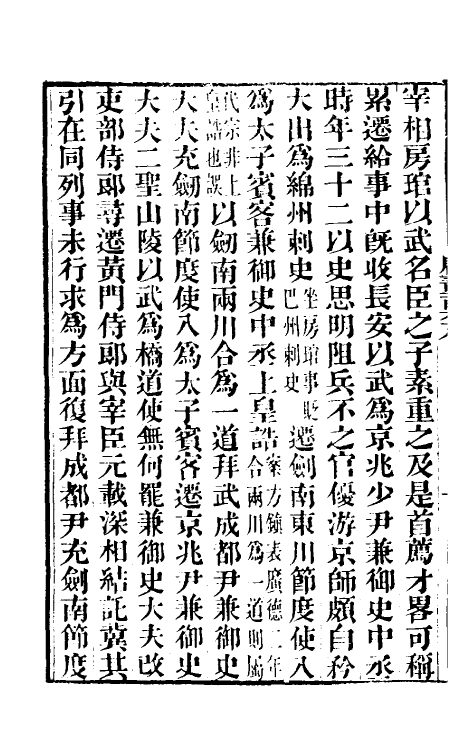 宰相房琯以武名臣之子素重之及是首薦才畧可稱
累遷給事中旣收長安以武爲京兆少尹兼御史中丞
時年三十二以史思明阻兵不之官優游京師頗自矜
大出爲綿州刺史坐房琯事貶巴州刺史遷劍南東川節度使入
爲太子賓客兼御史中丞上皇誥案方鎮表廣德二年合兩川爲一道則屬
代宗非上皇誥也誤以劍南兩川合爲一道拜武成都尹兼御史
大夫充劍南節度使入爲太子賓客遷京兆尹兼御史
大夫二聖山陵以武爲橋道使無何罷兼御史大夫改
吏部侍郞尋遷黃門侍郞與宰臣元載深相結託冀其
引在同列事未行求爲方面復拜成都尹充劍南節度